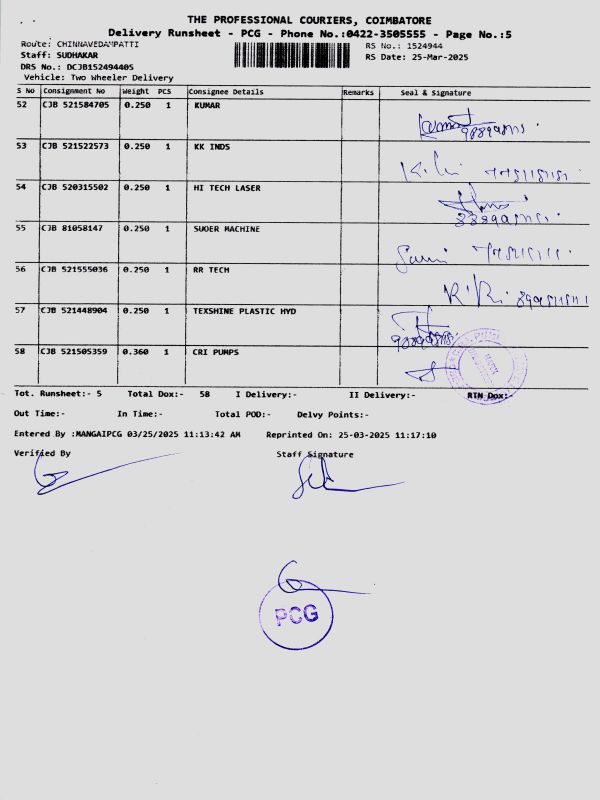 THE PROFESSIONAL COURIERS, COIMBATORE
Delivery Runsheet - PCG - Phone No.:0422-3505555 - Page No.:5
Route: CHINNAVEDAMPATTI RS No.: 1524944
Staff: SUDHAKAR RS Date: 25-Mar-2025
DRS No.: DCJB152494405
Vehicle: Two Wheeler Delivery
S No Consignment No Weight PCS Consignee Details Remarks Seal & Signature
52 CJB 521584705 0.250 1 KUMAR
53 CJB 521522573 0.250 1 KK INDS
54 CJB 520315502 0.250 1 HI TECH LASER
55 CJB 81058147 0.250 1 SUOER MACHINE
56 CJB 521555036 0.250 1 RR TECH
57 CJB 521448904 0.250 1 TEXSHINE PLASTIC HYD
58 CJB 521505359 0.360 1 CRI PUMPS
Tot. Runsheet:- 5 Total Dox:- 58 I Delivery:- II Delivery:- RTN Dox:-
Out Time:- In Time:- Total POD:- Delvy Points:-
Entered By :MANGAIPCG 03/25/2025 11:13:42 AM Reprinted On: 25-03-2025 11:17:10
Verified By Staff Signature
PCG